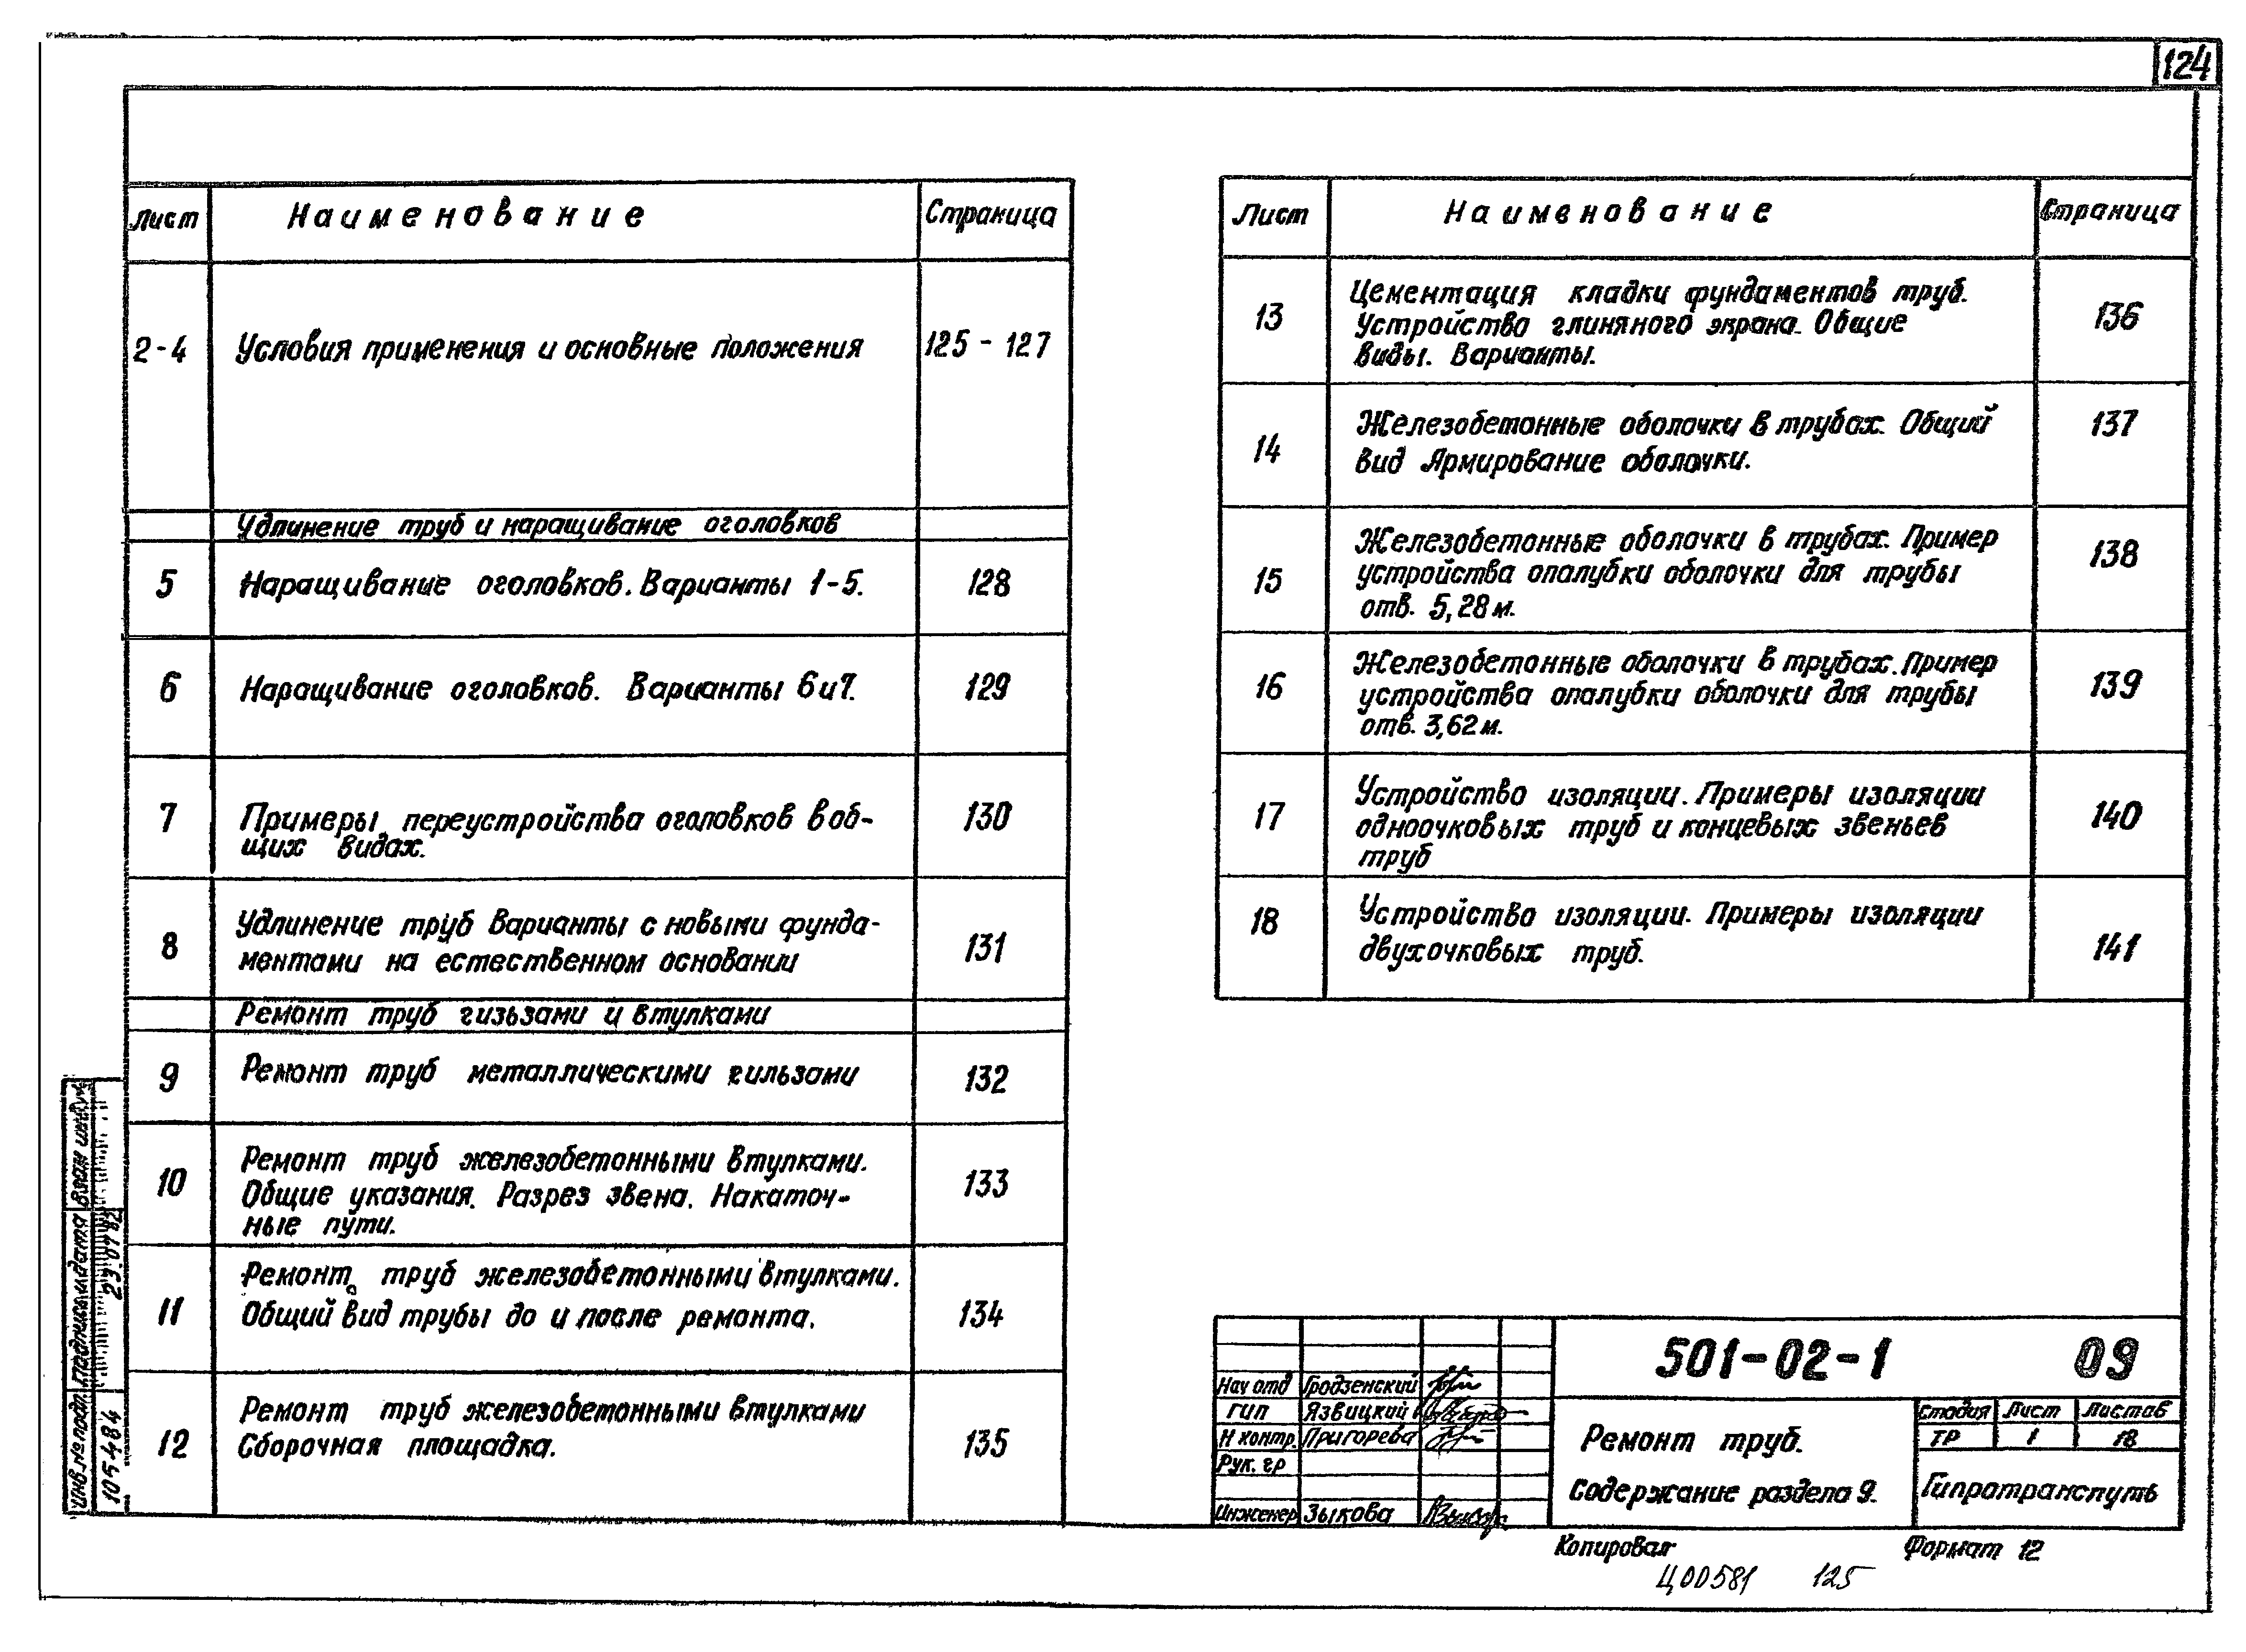 124
Лист Наименование Страница
2-4 Условия применения и основные положения 125 - 127
Удлинение труб и наращивание оголовков
5 Наращивание оголовков. Варианты 1-5. 128
6 Наращивание оголовков. Варианты 6 и 7. 129
7 Примеры переустройства оголовков в об-
щих видах. 130
8 Удлинение труб Варианты с новыми фунда-
ментами на естественном основании 131
Ремонт труб гизьзами и втулками
9 Ремонт труб металлическими гильзами 132
10 Ремонт труб железобетонными втулками.
Общие указания. Разрез звена. Накаточ-
ные пути. 133
11 Ремонт труб железобетонными втулками.
Общий вид трубы до и после ремонта. 134
12 Ремонт труб железобетонными втулками
Сборочная площадка. 135
Лист Наименование Страница
13 Цементация кладки фундаментов труб.
Устройство глиняного экрана. Общие
виды. Варианты. 136
14 Железобетонные оболочки в трубах. Общий
вид Армирование оболочки. 137
15 Железобетонные оболочки в трубах. Пример
устройства опалубки оболочки для трубы
отв. 5,28 м. 138
16 Железобетонные оболочки в трубах. Пример
устройства опалубки оболочки для трубы
отв. 3,62 м. 139
17 Устройство изоляции. Примеры изоляции
одноочковых труб и концевых звеньев
труб 140
18 Устройство изоляции. Примеры изоляции
двухочковых труб. 141
501-02-1 09
Нач отд Гродзенский
ГИП Язвицкий
Н контр. Пригорева
Рук. гр
Инженер Зыкова
Ремонт труб.
Содержание раздела 9.
Стадия Лист Листов
ТР 1 18
Гипротранспуть
Копировал Формат 12
Ц00581 125
Инв.№ подл. Подпись и дата Взам инв.№
105484 23.07.82